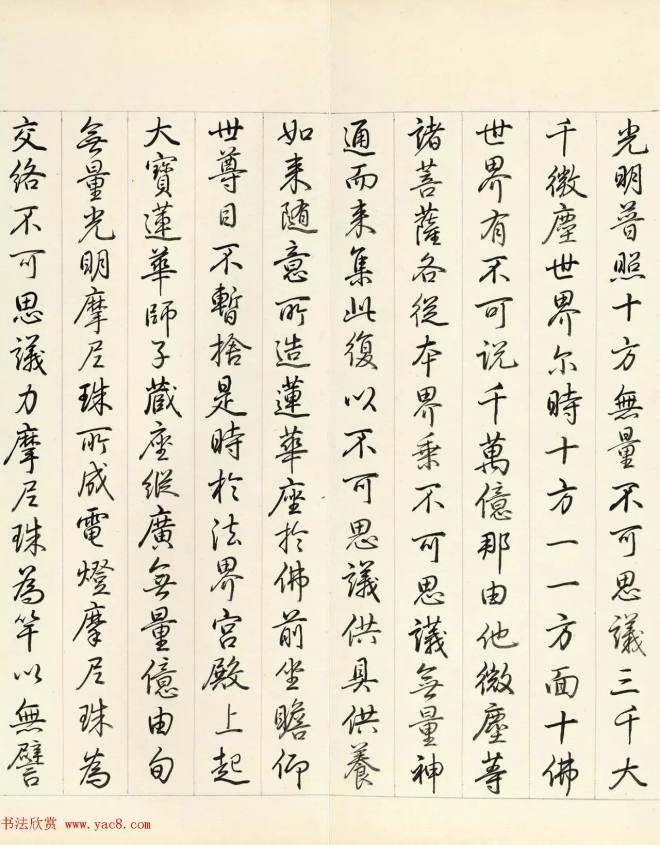 光明普照十方無量不可思議三千大
千微塵世界尔時十方一一方面十佛
世界有不可说千萬億那由他微塵等
諸菩薩各從本界乘不可思議無量神
通而来集此復以不可思議供具供養
如来随意所造蓮華座於佛前坐瞻仰
世尊目不暫捨是時於法界宫殿上起
大寶蓮華師子蔵座縱廣無量億由旬
無量光明摩尼珠所成電燈摩尼珠為
交络不可思議力摩尼珠為竿以無譬
书法欣赏 www.yac8.com